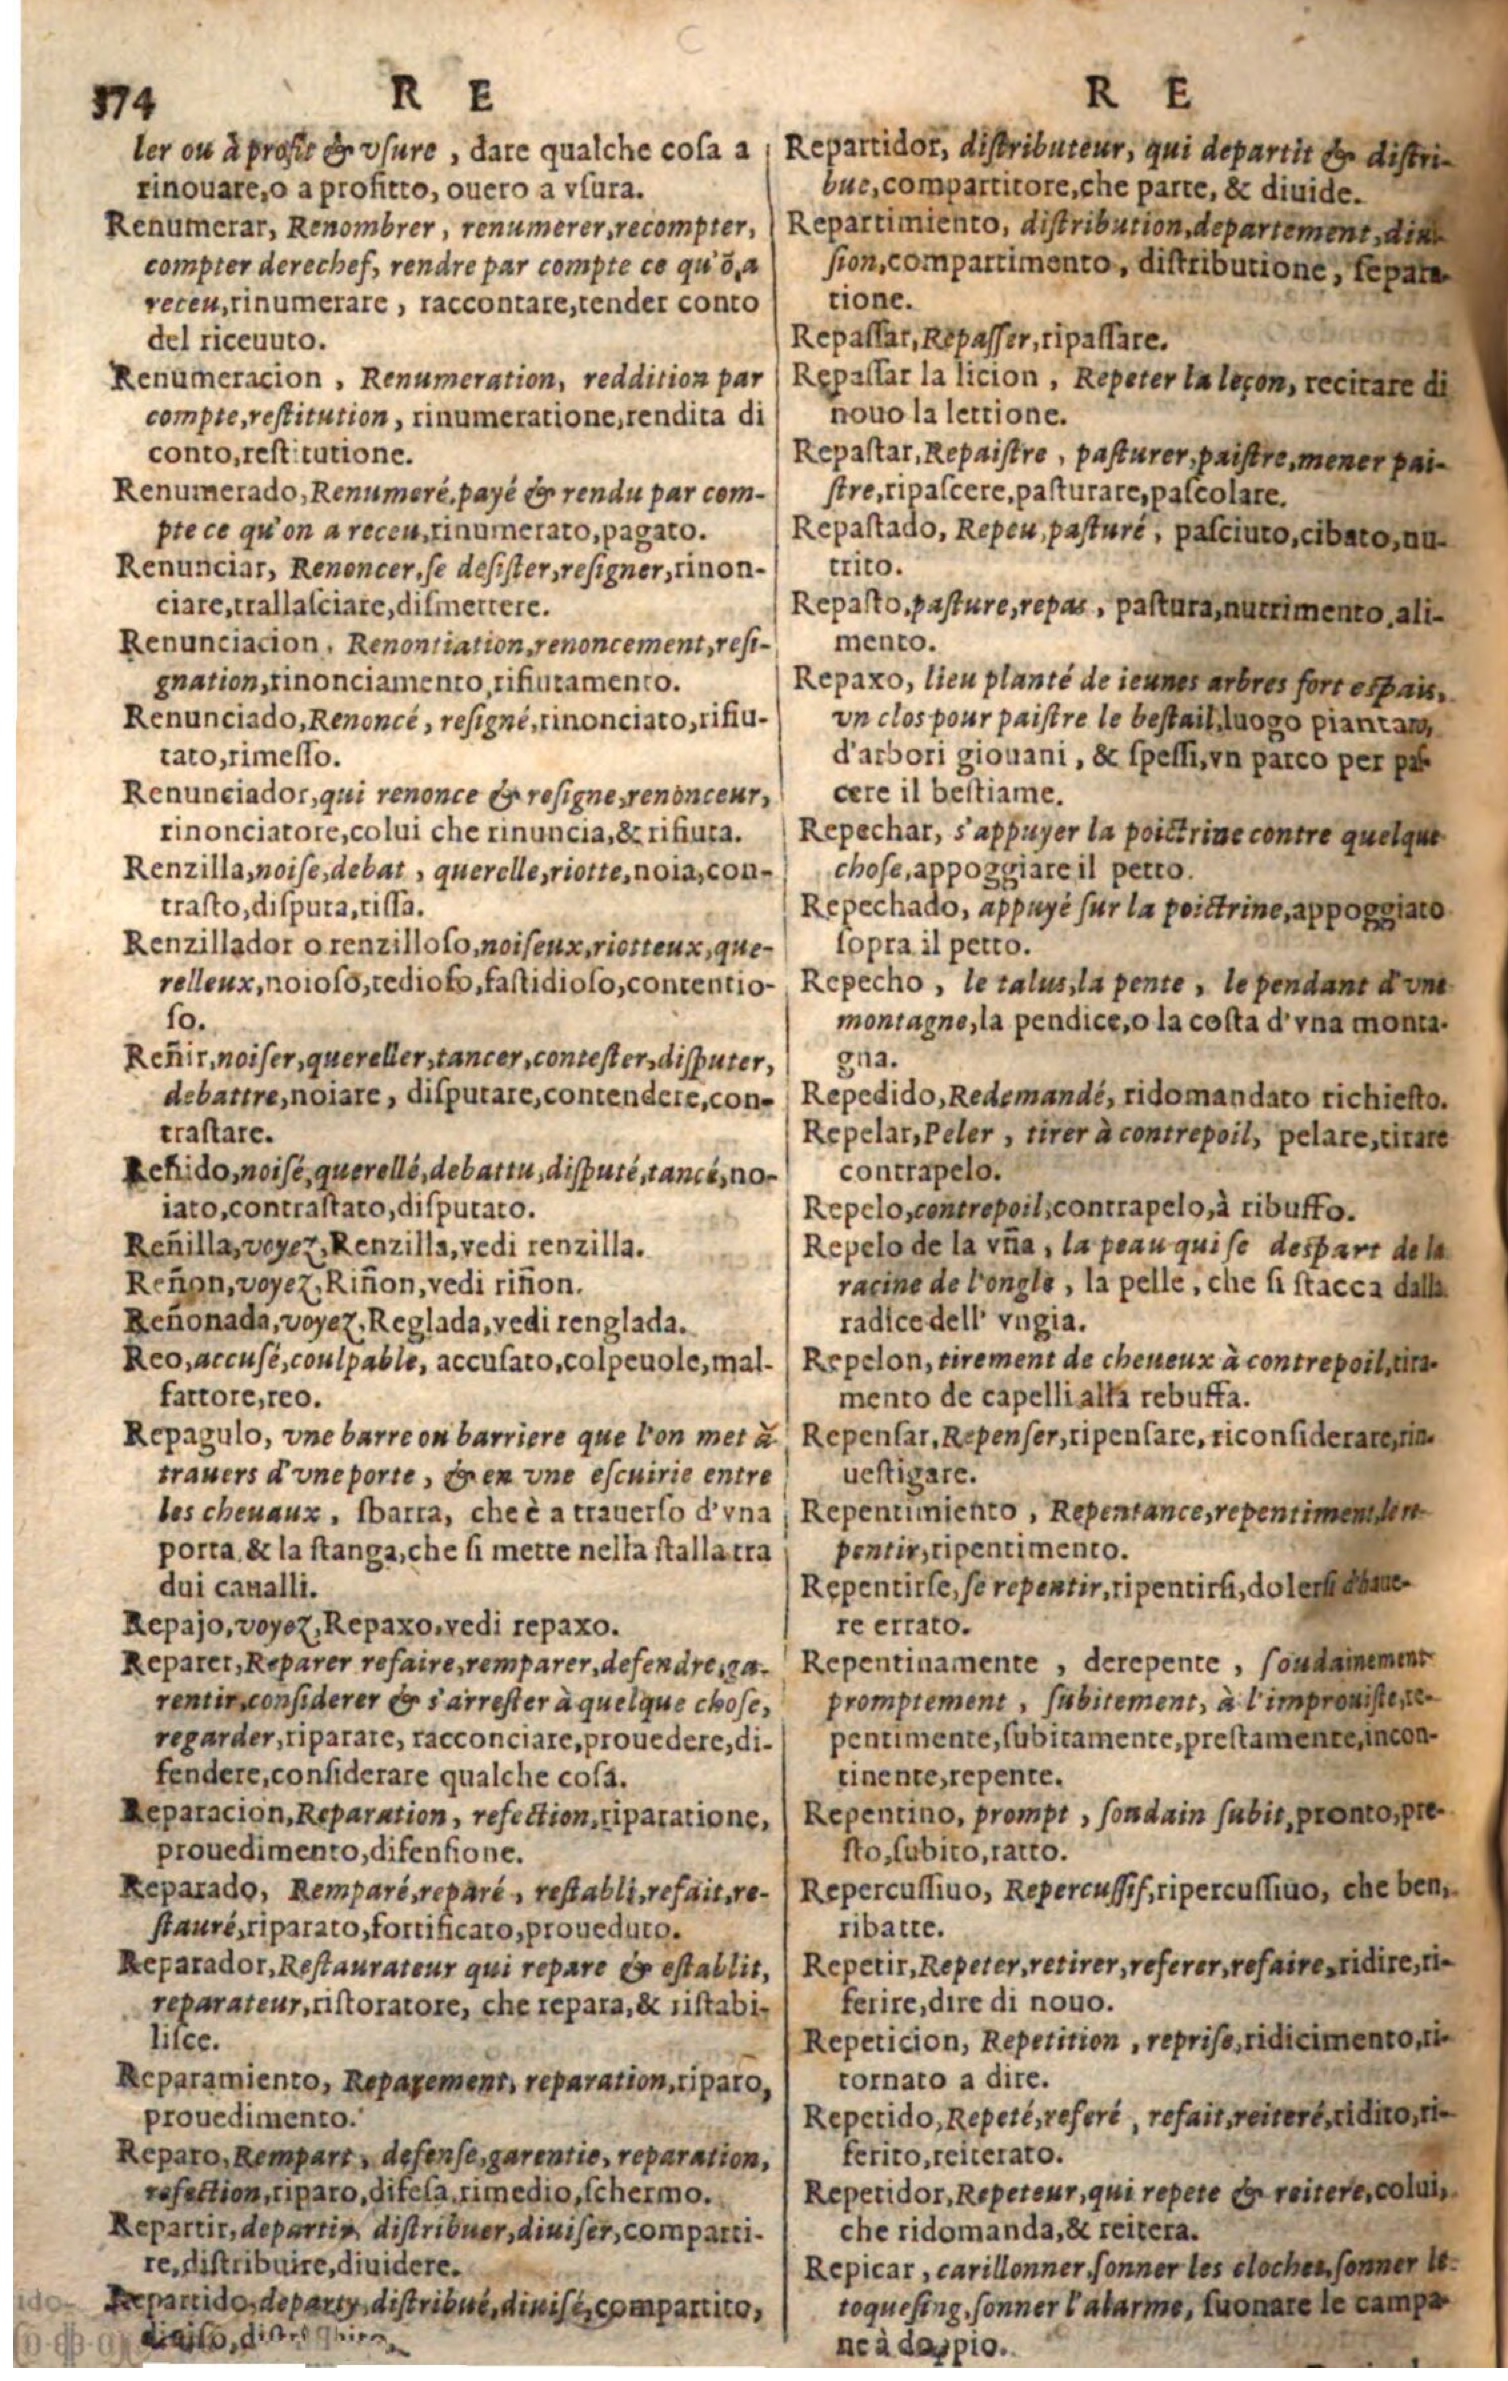 374
R E
ler ou à profit & vſure, dare qualche coſa a
rinouare, o a profitto, ouero a vſura.
Renumerar, Renombrer, renumerer, recompter,
compter derechef, rendre par compte ce qu'õ a
receu, rinumerare, raccontare, render conto
del riceuuto.
Renumeracion, Renumeration, reddition par
compte, reſtitution, rinumeratione, rendita di
conto, reſtitutione.
Renumerado, Renumeré, payé & rendu par com-
pte ce qu'on a receu, rinumerato, pagato.
Renunciar, Renoncer, ſe deſiſter, reſigner, rinon-
ciare, trallaſciare, diſmettere.
Renunciacion, Renontiation, renoncement, reſi-
gnation, rinonciamento, rifiutamento.
Renunciado, Renoncé, reſigné, rinonciato, rifiu-
tato, rimeſſo.
Renunciador, qui renonce & reſigne, renonceur,
rinonciatore, colui che rinuncia, & rifiuta.
Renzilla, noiſe, debat, querelle, riotte, noia, con-
traſto, diſputa, riſſa.
Renzillador o renzilloſo, noiſeux, riotteux, que-
relleux, noioſo, tedioſo, faſtidioſo, contentio-
ſo.
Reñir, noiſer, quereller, tancer, conteſter, diſputer,
debattre, noiare, diſputare, contendere, con-
traſtare.
Reñido, noiſé, querellé, debattu, diſputé, tancé, no-
iato, contraſtato, diſputato.
Reñilla, voyez, Renzilla, vedi renzilla.
Reñon, voyez, Riñon, vedi riñon.
Reñonada, voyez, Reglada, vedi renglada.
Reo, accuſé, coulpable, accuſato, colpeuole, mal-
fattore, reo.
Repagulo, vne barre ou barriere que l'on met à
trauers d'vne porte, & en vne eſcuirie entre
les cheuaux, ſbarra, che è a trauerſo d'vna
porta & la ſtanga, che ſi mette nella ſtalla tra
dui caualli.
Repajo, voyez, Repaxo, vedi repaxo.
Reparer, Reparer refaire, remparer, defendre, ga-
rentir, conſiderer & s'arreſter à quelque choſe,
regarder, riparare, racconciare, prouedere, di-
fendere, conſiderare qualche coſa.
Reparacion, Reparation, refection, riparatione,
prouedimento, difenſione.
Reparado, Remparé, reparé, reſtabli, refait, re-
ſtauré, riparato, fortificato, proueduto.
Reparador, Reſtaurateur qui repare & eſtablit,
reparateur, riſtoratore, che repara, & riſtabi-
liſce.
Reparamiento, Reparement, reparation, riparo,
prouedimento.
Reparo, Rempart, defenſe, garentie, reparation,
refection, riparo, difeſa, rimedio, ſchermo.
Repartir, departir, diſtribuer, diuiſer, comparti-
re, diſtribuire, diuidere.
Repartido, departy, diſtribué, diuiſé, compartito,
diuiſo,
R E
Repartidor, diſtributeur, qui departit & diſtri-
bue, compartitore, che parte, & diuide.
Repartimiento, diſtribution, departement, diui-
ſion, compartimento, diſtributione, ſepara-
tione.
Repaſſar, Repaſſer, ripaſſare.
Repaſſar la licion, Repeter la leçon, recitare di
nouo la lettione.
Repaſtar, Repaiſtre, paſturer, paiſtre, mener pai-
ſtre, ripaſcere, paſturare, paſcolare.
Repaſtado, Repeu, paſturé, paſciuto, cibato, nu-
trito.
Repaſto, paſture, repas, paſtura, nutrimento, ali-
mento.
Repaxo, lieu planté de ieunes arbres fort eſpais,
vn clos pour paiſtre le beſtail, luogo piantato,
d'arbori giouani, & ſpeſſi, vn parco per paſ-
cere il beſtiame.
Repechar, s'appuyer la poictrine contre quelque
choſe, appoggiare il petto.
Repechado, appuyé ſur la poictrine, appoggiato
ſopra il petto.
Repecho, le talus, la pente, le pendant d'vne
montagne, la pendice, o la coſta d'vna monta-
gna.
Repedido, Redemandé, ridomandato richieſto.
Repelar, Peler, tirer à contrepoil, pelare, tirare
contrapelo.
Repelo, contrepoil, contrapelo, à ribuffo.
Repelo de la vña, la peau qui ſe deſpart de la
racine de l'ongle, la pelle, che ſi ſtacca dalla
radice dell' vngia.
Repelon, tirement de cheueux à contrepoil, tira-
mento de capelli alla rebuffa.
Repenſar, Repenſer, ripenſare, riconſiderare, rin-
ueſtigare.
Repentimiento, Repentance, repentiment, le re-
pentir, ripentimento.
Repentirſe, ſe repentir, ripentirſi, dolerſi d'haue-
re errato.
Repentinamente, derepente, ſoudainement
promptement, ſubitement, à l'improuiſte, re-
pentimente, ſubitamente, preſtamente, incon-
tinente, repente.
Repentino, prompt, ſoudain ſubit, pronto, pre-
ſto, ſubito, ratto.
Repercuſſiuo, Repercuſſif, ripercuſſiuo, che ben,
ribatte.
Repetir, Repeter, retirer, referer, refaire, ridire, ri-
ferire, dire di nouo.
Repeticion, Repetition, repriſe, ridicimento, ri-
tornato a dire.
Repetido, Repeté, referé, refait, reiteré, ridito, ri-
ferito, reiterato.
Repetidor, Repeteur, qui repete & reitere, colui,
che ridomanda, & reitera.
Repicar, carillonner, ſonner les cloches, ſonner le
toqueſing, ſonner l'alarme, ſuonare le campa-
ne à doppio.